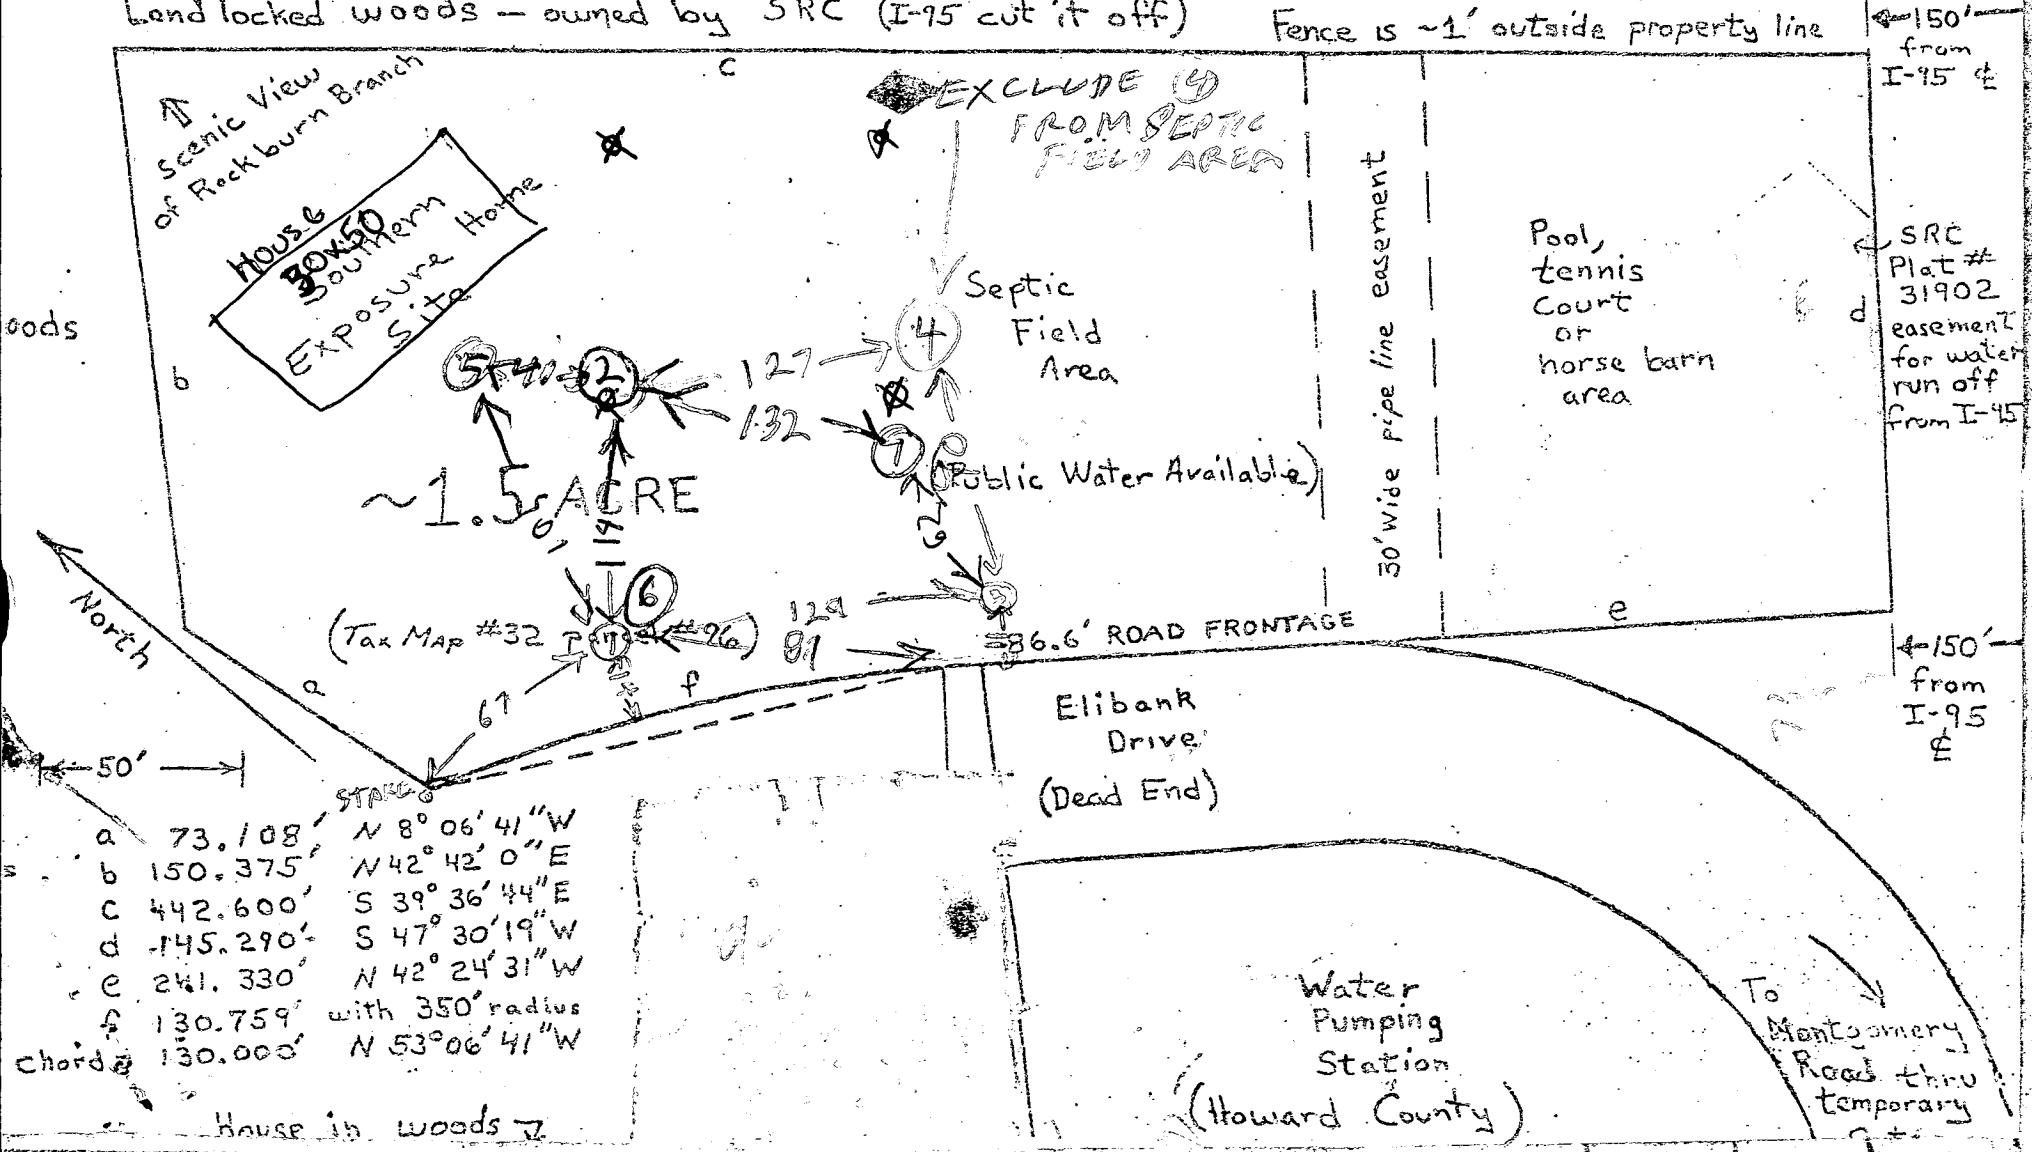 Land locked woods - owned by SRC (I-95 cut it off)
Fence is ~1' outside property line
150'
from
I-95 ℄
c
Scenic View
of Rockburn Branch
EXCLUDE 4
FROM SEPTIC
FIELD AREA
House
30x50
Southern
Exposure Home
Site
oods
b
Septic
Field
Area
4
5
40
2
127
132
(Public Water Available)
30' wide pipe line easement
Pool,
tennis
Court
or
horse barn
area
d
SRC
Plat #
31902
easement
for water
run off
from I-95
~1.5 ACRE
62
North
6
(Tax Map #32 Parcel #96)
129
89
86.6' ROAD FRONTAGE
e
a
67
f
50'
STAKE
Elibank
Drive
(Dead End)
150'
from
I-95
℄
a 73.108' N 8° 06' 41" W
b 150.375' N 42° 42' 0" E
c 442.600' S 39° 36' 44" E
d 145.290' S 47° 30' 19" W
e 241.330' N 42° 24' 31" W
f 130.759' with 350' radius
chord 130.000' N 53° 06' 41" W
House in woods
Water
Pumping
Station
(Howard County)
To
Montgomery
Road thru
temporary